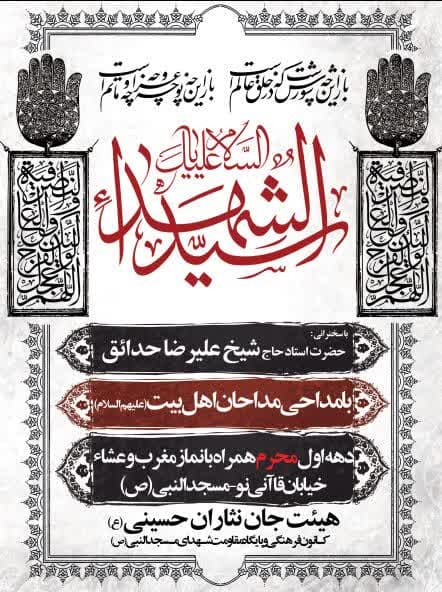 باز این چه شورش است که در خلق عالم است
باز این چه نوحه و چه عزا و چه ماتم است
السلام علیک یا
سیدالشهداء
باسخنرانی:
حضرت استاد حاج شیخ علیرضا حدائق
بامداحی مداحان اهل بیت (علیهم السلام)
دهه اول محرم همراه بانماز مغرب و عشاء
خیابان قاآنی نو-مسجدالنبی (ص)
هیئت جان نثاران حسینی (ع)
کانون فرهنگی و پایگاه مقاومت شهدای مسجدالنبی (ص)